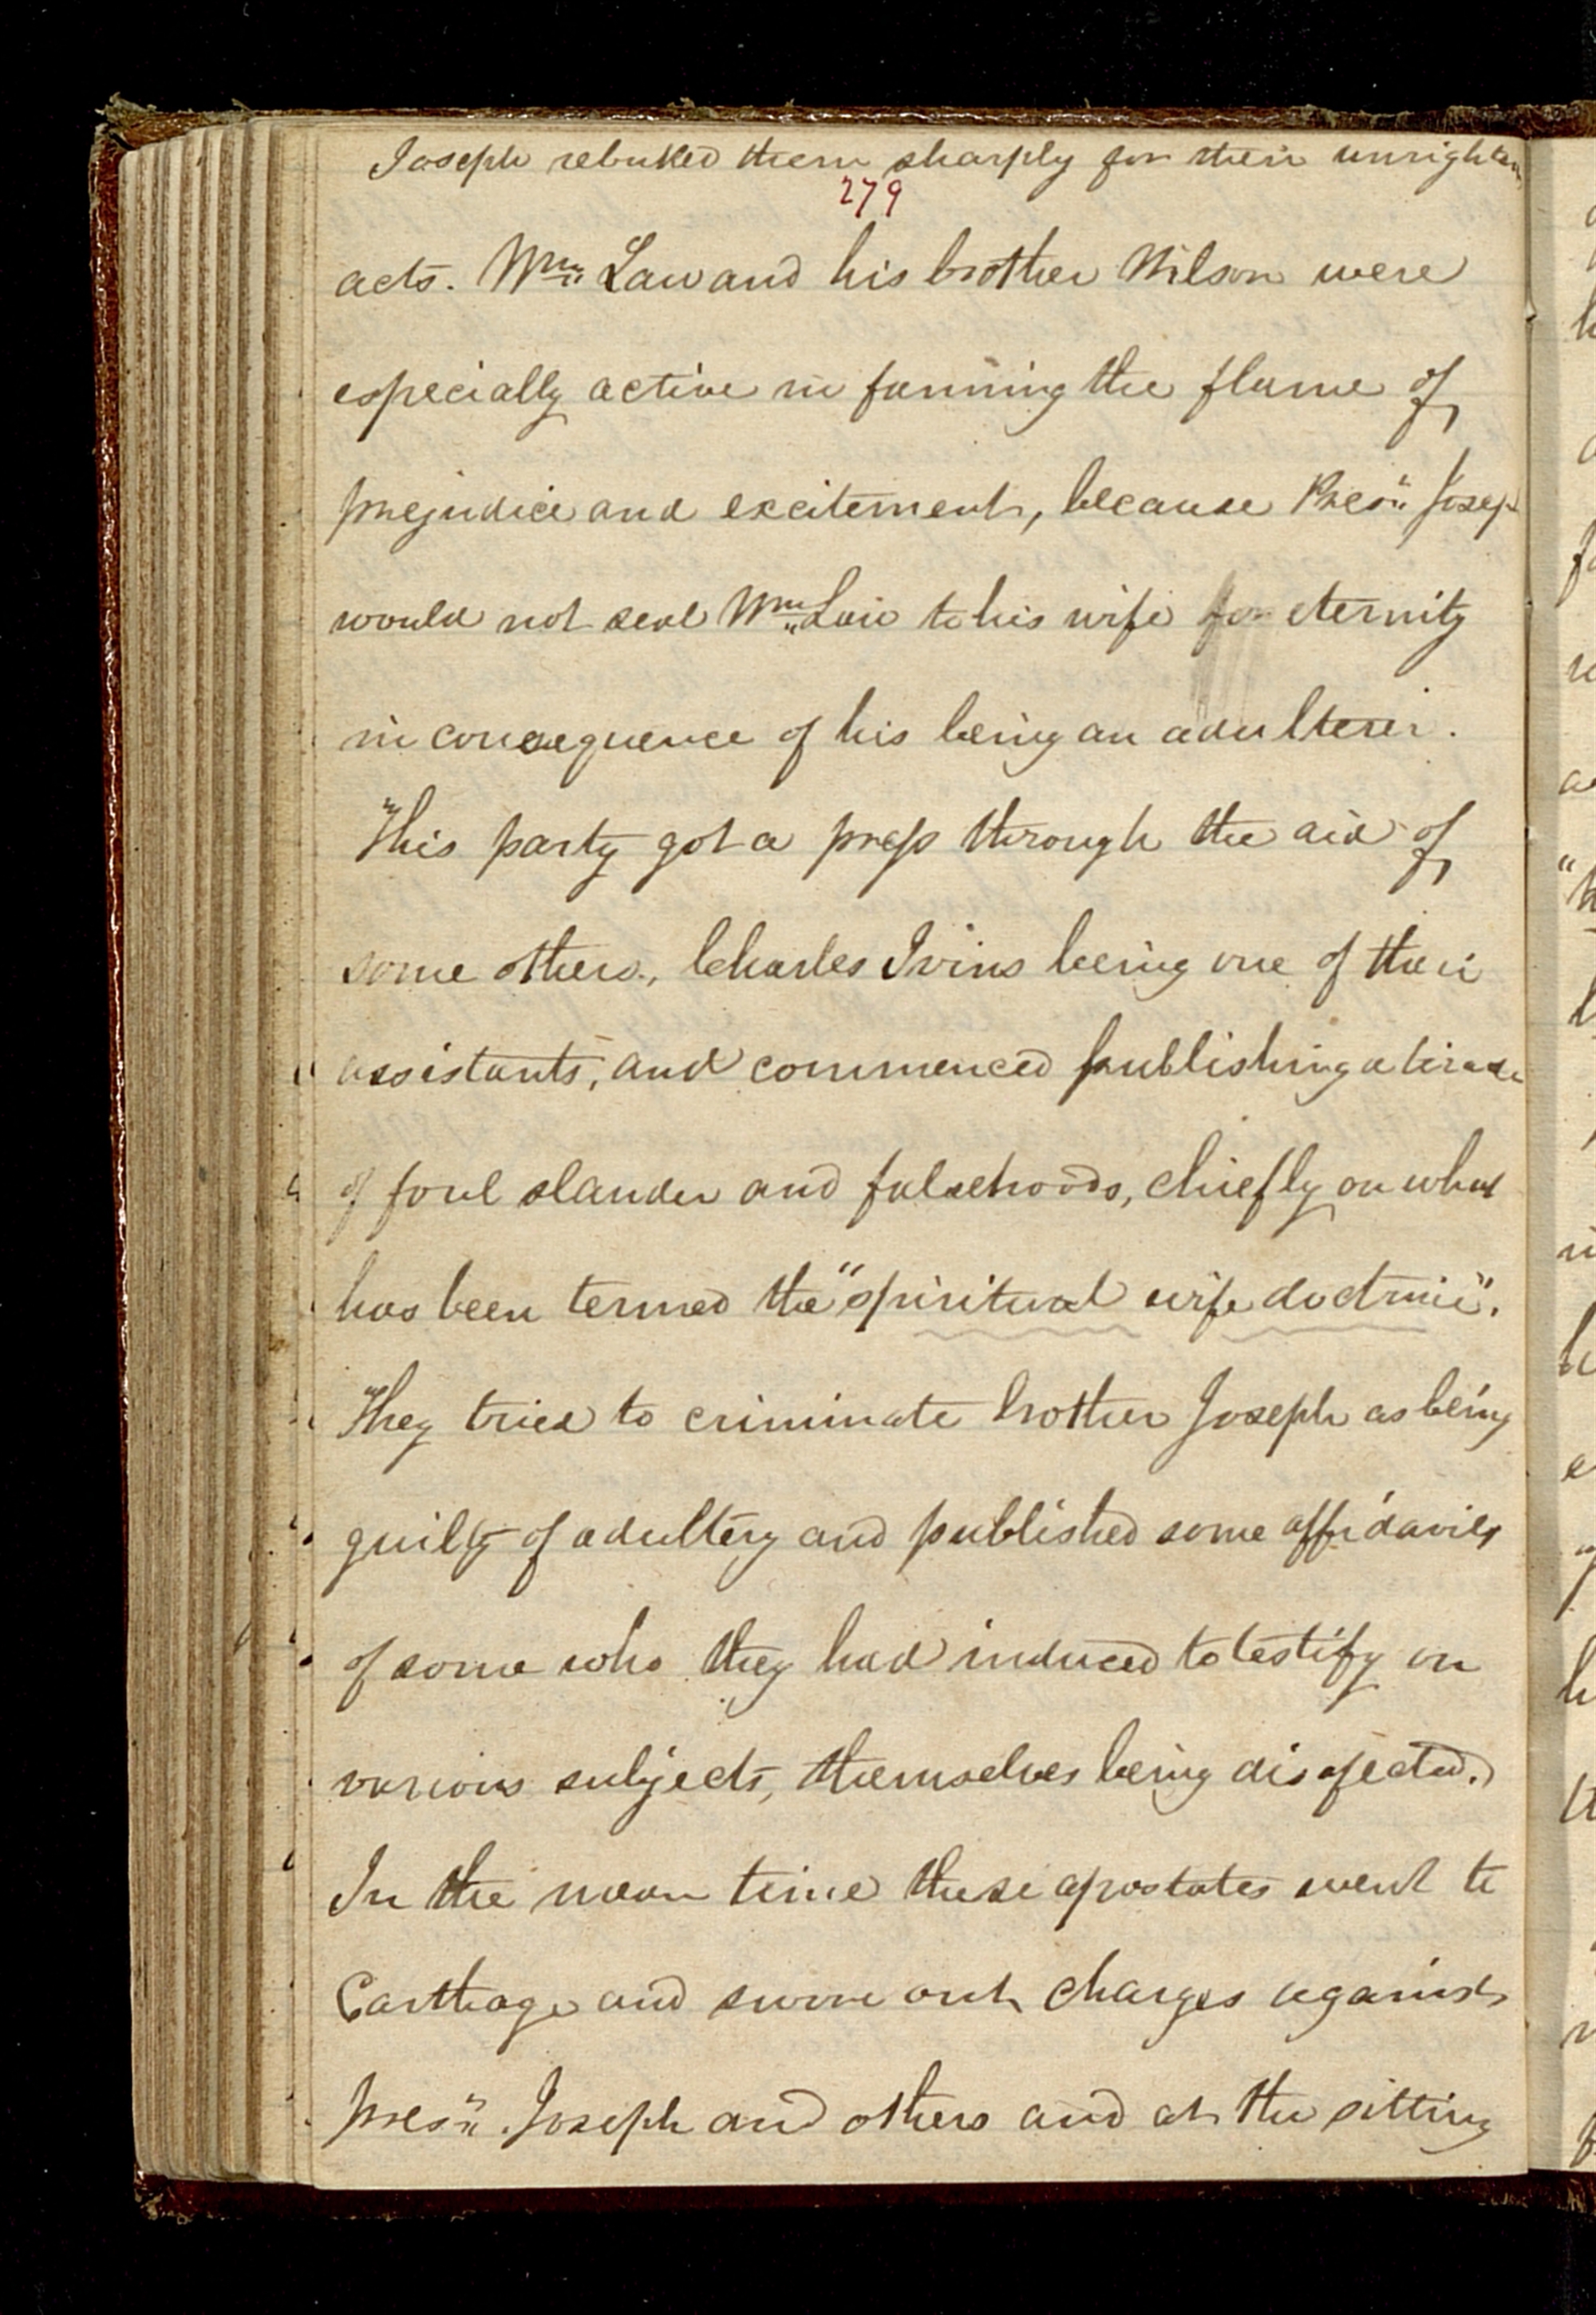 Joseph rebuked them sharply for their unrighteous
279
acts. Wm. Law and his brother Wilson were
especially active in fanning the flame of
prejudice and excitement, because Pres. Joseph
would not seal Wm. Law to his wife for eternity
in consequence of his being an adulterer.
This party got a press through the aid of
some others, Charles Ivins being one of their
assistants, and commenced publishing a tirade
of foul slander and falsehoods, chiefly on what
has been termed the "spiritual wife doctrine".
They tried to criminate brother Joseph as being
guilty of adultery and published some affidavits
of some who they had induced to testify on
various subjects, themselves being disafected.
In the mean time these apostates went to
Carthage and swore out charges against
pres. Joseph and others and at the sitting